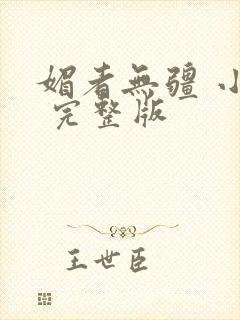 媚者無疆 小
完整版
王世臣